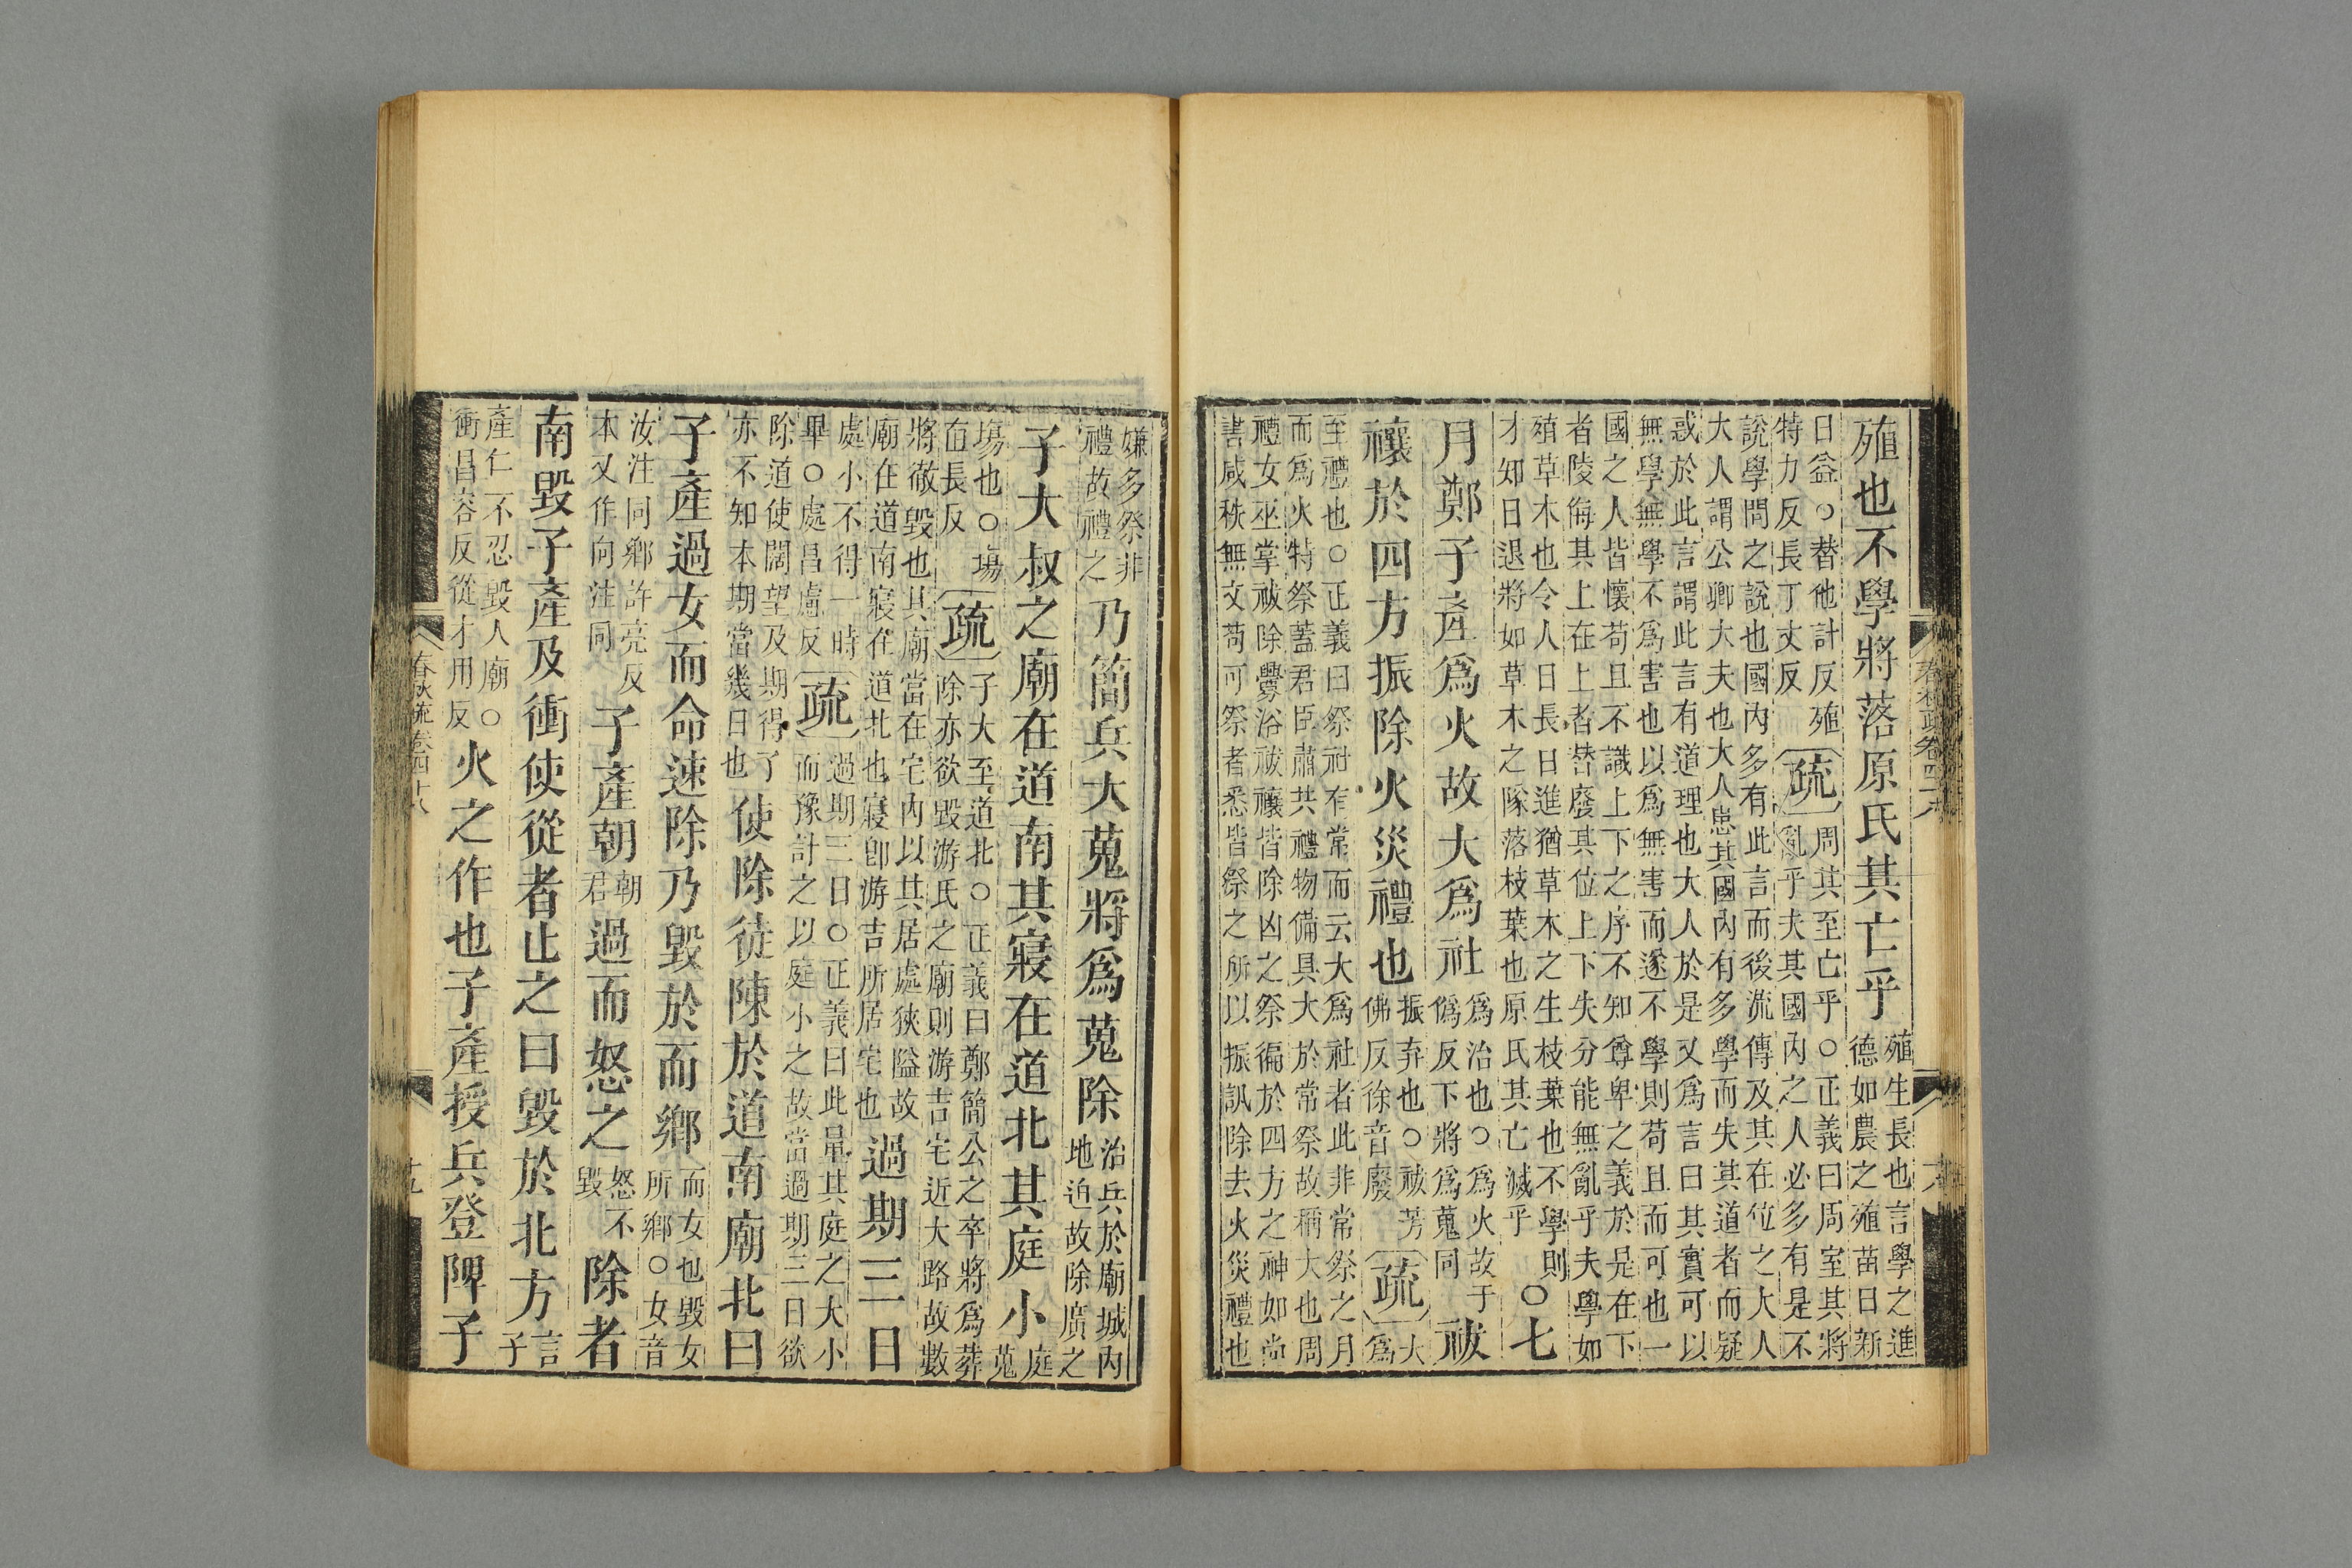 殖也不學將落原氏其亡乎殖生長也言學之進
德如農之殖苗日新
日益○替他計反殖
特力反長丁丈反疏周其至亡乎○正義曰周室其將
亂乎夫其國內之人必多有是不
說學問之說也國內多有此言而後流傳及其在位之大人
大人謂公卿大夫也大人患其國內有多學而失其道者而疑
惑於此言謂此言有道理也大人於是又爲言曰其實可以
無學無學不爲害也以爲無害而遂不學則苟且而可也一
國之人皆懷苟且不識上下之序不知尊卑之義於是在下
者陵侮其上在上者替廢其位上下失分能無亂乎夫學如
殖草木也令人日長日進猶草木之生枝葉也不學則
才知日退將如草木之隊落枝葉也原氏其亡滅乎○七
月鄭子產爲火故大爲社爲治也○爲火故于
僞反下將爲蒐同祓
禳於四方振除火災禮也振弃也○祓芳
佛反徐音廢疏大
爲
至禮也○正義曰祭社有常而云大爲社者此非常祭之月
而爲火特祭蓋君臣肅共禮物備具大於常祭故稱大也周
禮女巫掌祓除釁浴祓禳皆除凶之祭徧於四方之神如尚
書咸秩無文苟可祭者悉皆祭之所以振訊除去火災禮也
嫌多祭非
禮故禮之乃簡兵大蒐將爲蒐除治兵於廟城內
地迫故除廣之
子大叔之廟在道南其寢在道北其庭小庭
蒐
場也○場
直長反疏子大至道北○正義曰鄭簡公之卒將爲葬
除亦欲毀游氏之廟則游吉宅近大路故數
將徹毀也其廟當在宅內以其居處狹隘故
廟在道南寢在道北也寢卽游吉所居宅也過期三日
處小不得一時
畢○處昌慮反疏過期三日○正義曰此量其庭之大小
而豫計之以庭小之故當過期三日欲
除道使闊望及期得了
亦不知本期當幾日也使除徒陳於道南廟北曰
子產過女而命速除乃毀於而鄉而女也毀女
所鄉○女音
汝注同鄉許亮反
本又作向注同子產朝朝
君過而怒之怒不
毀除者
南毀子產及衝使從者止之曰毀於北方言
子
產仁不忍毀人廟○
衝昌容反從才用反火之作也子產授兵登陴子
春秋疏卷四十八
十九